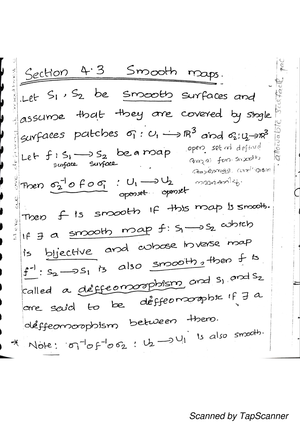 Section 4.3 Smooth maps.
Let S₁, S₂ be smooth surfaces and
assume that they are covered by single
surfaces patches σ₁: U₁ → ℝ³ and σ₂: U₂→ℝ³
Let f: S₁ → S₂ be a map
surface surface
open set
Then σ₂⁻¹ o f o σ₁ : U₁ → U₂
openset openset
Then f is smooth if this map is smooth.
If ∃ a smooth map f: S₁→S₂ which
is bijective and whose inverse map
f⁻¹: S₂→S₁ is also smooth, then f is
called a diffeomorphism and S₁ and S₂
are said to be deffeomorphic if ∃ a
deffeomorphism between them.
* Note: σ₁⁻¹ o f⁻¹ o σ₂ : U₂ → U₁ is also smooth.
Scanned by TapScanner